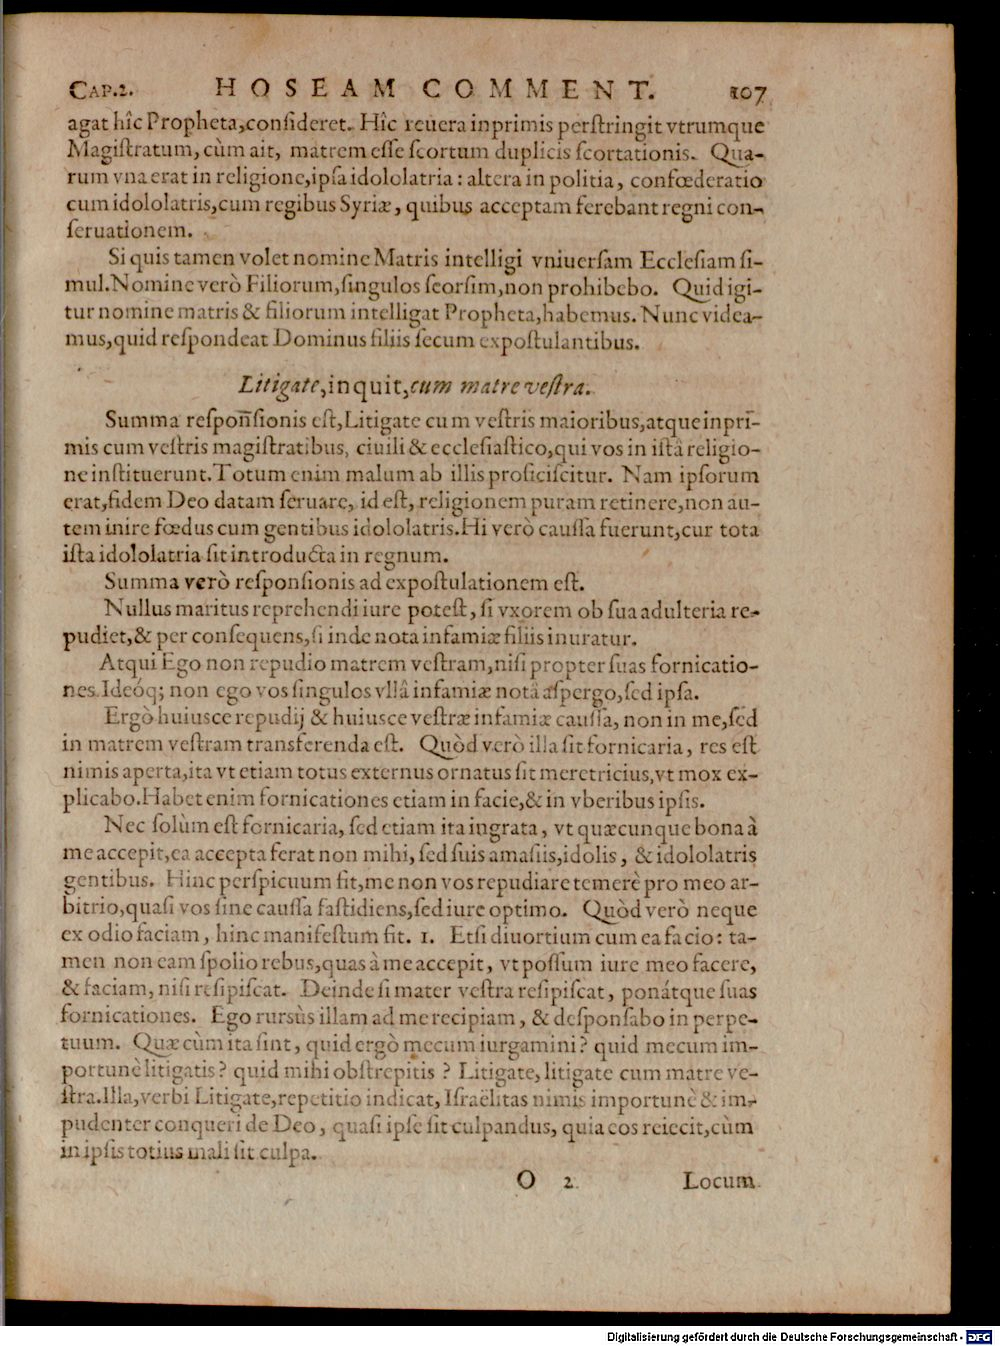 CAP.2. HOSEAM COMMENT. 107
agat hîc Propheta,conſideret. Hîc reuera inprimis perſtringit vtrumque
Magiſtratum, cùm ait, matrem eſſe ſcortum duplicis ſcortationis. Qua-
rum vna erat in religione,ipſa idololatria : altera in politia, confœderatio
cum idololatris,cum regibus Syriæ, quibus acceptam ferebant regni con-
ſeruationem.
Si quis tamen volet nomine Matris intelligi vniuerſam Eccleſiam ſi-
mul.Nomine verò Filiorum,ſingulos ſeorſim,non prohibebo. Quid igi-
tur nomine matris & filiorum intelligat Propheta,habemus. Nunc videa-
mus,quid reſpondeat Dominus filiis ſecum expoſtulantibus.
Litigate,inquit,cum matre veſtra.
Summa reſponſionis eſt,Litigate cum veſtris maioribus,atque inpri-
mis cum veſtris magiſtratibus, ciuili & eccleſiaſtico,qui vos in iſtâ religio-
ne inſtituerunt.Totum enim malum ab illis proficiſcitur. Nam ipſorum
erat,fidem Deo datam ſeruare, id eſt, religionem puram retinere,non au-
tem inire fœdus cum gentibus idololatris.Hi verò cauſſa fuerunt,cur tota
iſta idololatria ſit introducta in regnum.
Summa verò reſponſionis ad expoſtulationem eſt.
Nullus maritus reprehendi iure poteſt, ſi vxorem ob ſua adulteria re-
pudiet,& per conſequens,ſi inde nota infamiæ filiis inuratur.
Atqui Ego non repudio matrem veſtram,niſi propter ſuas fornicatio-
nes.Ideóq; non ego vos ſingulos vllâ infamiæ notâ aſpergo,ſed ipſa.
Ergò huiusce repudij & huiusce veſtræ infamiæ cauſſa, non in me,ſed
in matrem veſtram transferenda eſt. Quòd verò illa ſit fornicaria, res eſt
nimis aperta,ita vt etiam totus externus ornatus ſit meretricius,vt mox ex-
plicabo.Habet enim fornicationes etiam in facie,& in vberibus ipſis.
Nec ſolùm eſt fornicaria, ſed etiam ita ingrata, vt quæcunque bona à
me accepit,ea accepta ferat non mihi, ſed ſuis amaſiis,idolis, & idololatris
gentibus. Hinc perſpicuum fit,me non vos repudiare temerè pro meo ar-
bitrio,quaſi vos ſine cauſſa faſtidiens,ſed iure optimo. Quòd verò neque
ex odio faciam, hinc manifeſtum fit. 1. Etſi diuortium cum ea facio: ta-
men non eam ſpolio rebus,quas à me accepit, vt poſſum iure meo facere,
& faciam, niſi reſipiſcat. Deinde ſi mater veſtra reſipiſcat, ponátque ſuas
fornicationes. Ego rurſùs illam ad me recipiam, & deſponſabo in perpe-
tuum. Quæ cùm ita ſint, quid ergò mecum iurgamini? quid mecum im-
portunè litigatis? quid mihi obſtrepitis? Litigate, litigate cum matre ve-
ſtra.Illa,verbi Litigate,repetitio indicat, Iſraëlitas nimis importunè & im-
pudenter conqueri de Deo, quaſi ipſe ſit culpandus, quia eos reiecit,cùm
in ipſis totius mali ſit culpa.
O 2 Locum
Digitalisierung gefördert durch die Deutsche Forschungsgemeinschaft - DFG